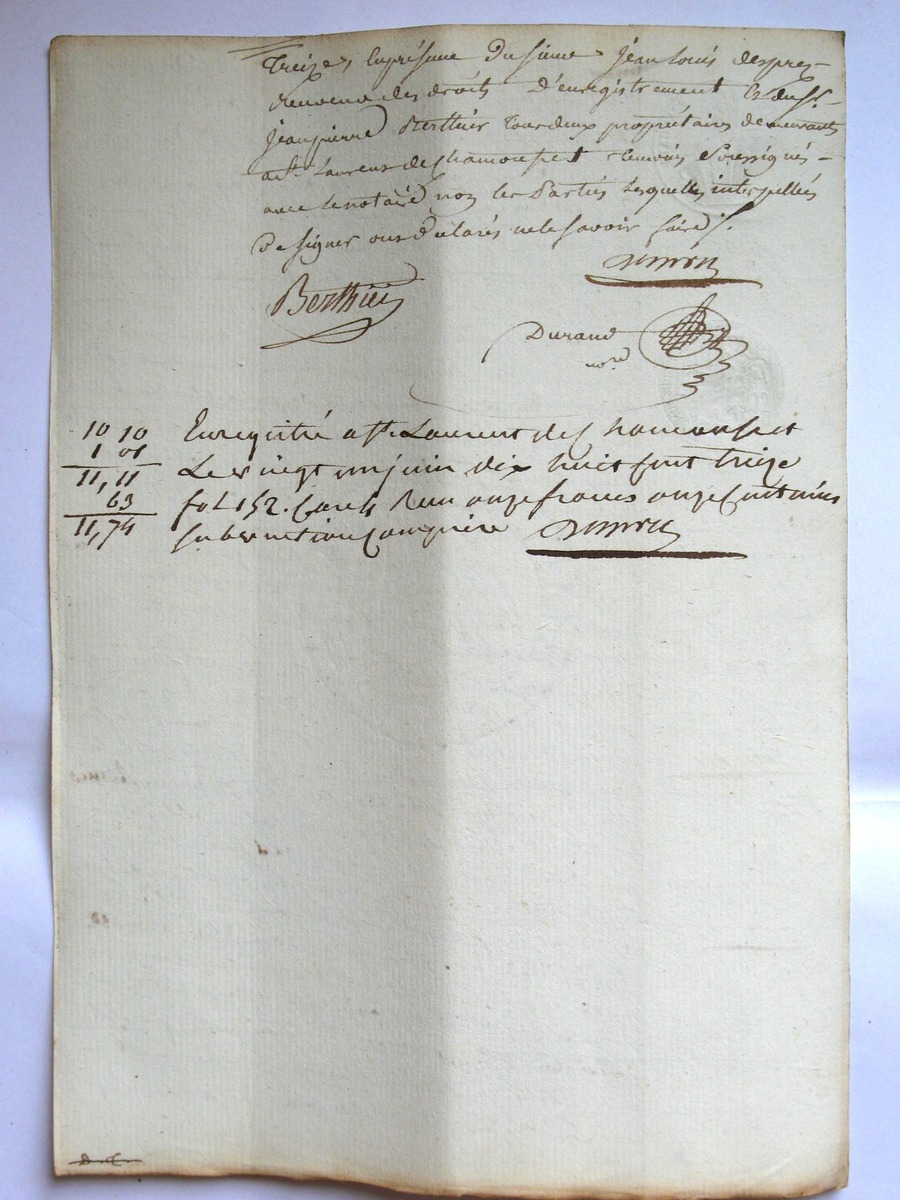 treize, en présence du sieur Jean Louis despres
receveur des droits d'enregistrement et du sr.
Jean pierre Berthier tous deux propriétaires demeurants
a St. Laurent de Chamousset temoins soussignés
avec le notaire non les Parties lesquelles interpellées
De signer ont déclarés ne le savoir faire /.
Berthier
Durand
nore
10 10
1 01
11, 11
63
11, 74
Enregistré a St. Laurent de Chamousset
Le vingt un juin dix huit cent treize
fol 152. Case 4 Reçu onze francs onze Centimes
subvention Comprise